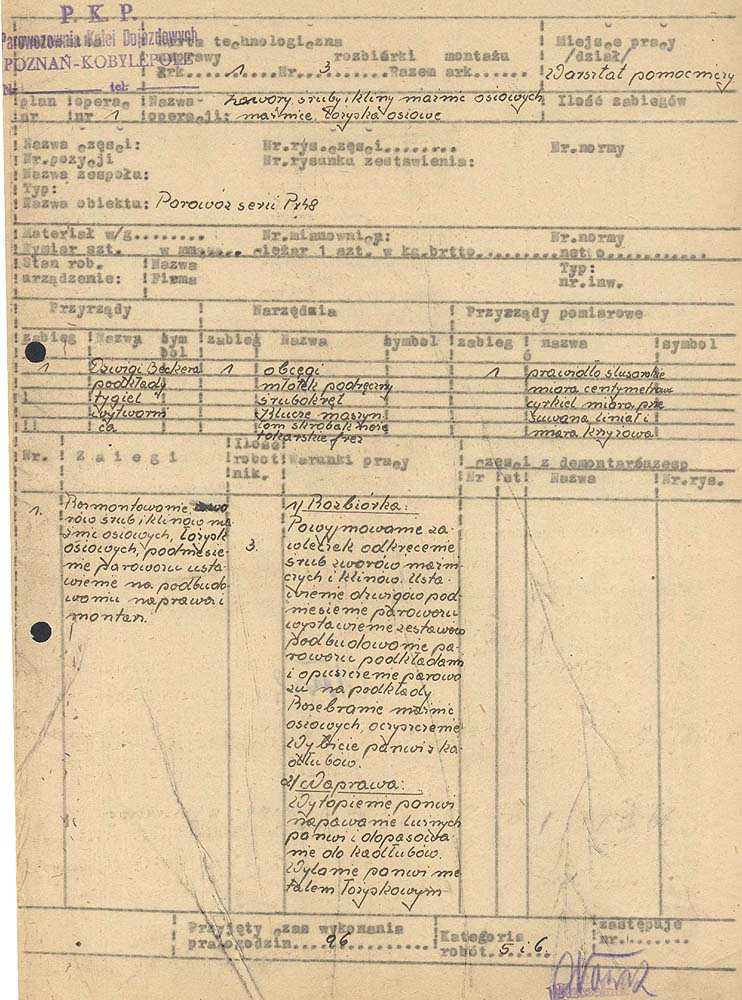 P. K. P.
Parowozownia Kolei Dojazdowych
POZNAŃ-KOBYLEPOLE
Nr tel:
Karta technologiczna
naprawy rozbiórki montażu
Ark. 1 Nr. 3 Razem ark.
Miejsce pracy
/dział/
Warsztat pomocniczy
plan nr
opera nr 1
Nazwa operacji: zawory, śruby i kliny maźnic osiowych
maźnice, łożyska osiowe
Ilość zabiegów
Nazwa części: Nr.rys.części........ Nr.normy
Nr.pozycji Nr.rysunku zestawienia:
Nazwa zespołu:
Typ:
Nazwa obiektu: Parowóz serii Px48
Materiał w/g........ Nr.mianownicz: Nr.normy
Wymiar szt. w mm..... ciężar 1 szt. w kg.brtto.........netto............
Stan rob. Nazwa Typ:
urządzenie: Firma nr.inw.
Przyrządy Narzędzia Przyrządy pomiarowe
zabieg Nazwa symbol zabieg Nazwa symbol zabieg nazwa symbol
1 Dźwigi Beckera 1 obcęgi 1 prawidło ślusarskie
podkłady młotek podręczny miara centymetrowa
tygiel śrubokręt cyrkiel miara prze
wytworni klucze maszyn suwana liniał i
ca łom skrobak noże miara krzyżowa
tokarskie frez
Nr. Zabiegi Ilość robotnik. Warunki pracy części z demontażu zesp
Nr szt Nazwa Nr.rys.
1. Rozmontowanie zawo
rów śrub i klinów ma
źnic osiowych, łożysk
osiowych, podniesie-
nie parowozu usta
wienie na podbudo
waniu naprawa i
montaż.
3.
1/ Rozbiórka:
Powyjmowanie za
wleczek odkręcenie
śrub zworów maźni
czych i klinów. Usta-
wienie dźwigów pod
niesienie parowozu
wystawienie zestawów
podbudowanie pa-
rowozu podkładami
i opuszczenie parowo
zu na podkłady
Rozebranie maźnic
osiowych, oczyszczenie
Wybicie panwi z ka
dłubów.
2/ Naprawa:
Wytopienie panwi
napawanie luźnych
panwi i dopasowa
nie do kadłubów.
Wylanie panwi me
talem łożyskowym
Przyjęty czas wykonania
pracogodzin.... 96
Kategoria
robót. 5 i 6.
zastępuje
nr.